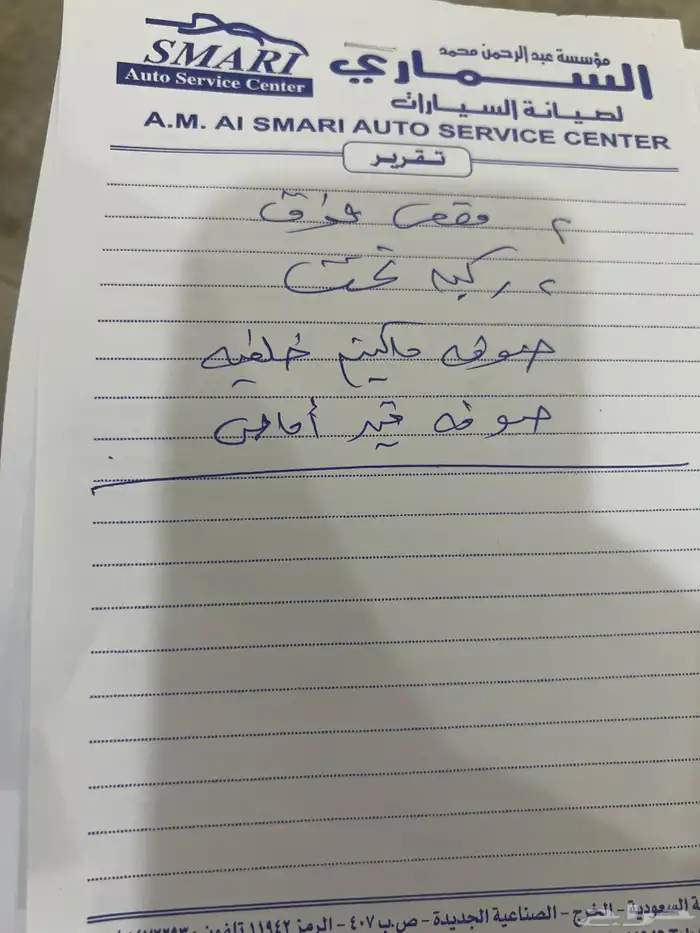 SMARI
Auto Service Center
مؤسسة عبدالرحمن محمد
السماري
لصيانة السيارات
A.M. Al SMARI AUTO SERVICE CENTER
تقرير
٢ مقص فوق
٢ ركبه تحت
صوفه ماكينه خلفيه
صوفه قير أمامي
السعودية - الخرج - الصناعية الجديدة - ص.ب ٤٠٧ - الرمز ١١٩٤٢ تلفون